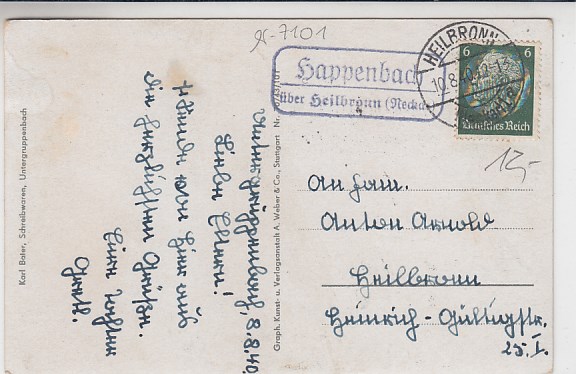 gr-7101
Happenbach
über Heilbronn (Neckar)
HEILBRONN
10.8.40
6 6
Deutsches Reich
12,-
An Fam.
Anton Arnold
Heilbronn
Heinrich-Gültigstr.
25. I.
Untergruppenbach, 8.8.40.
Lieben Eltern!
senden wir hier aus
die herzlichsten Grüßen.
Eure
Karl Baier, Schreibwaren, Untergruppenbach
Graph. Kunst- u. Verlagsanstalt A. Weber & Co., Stuttgart Nr.